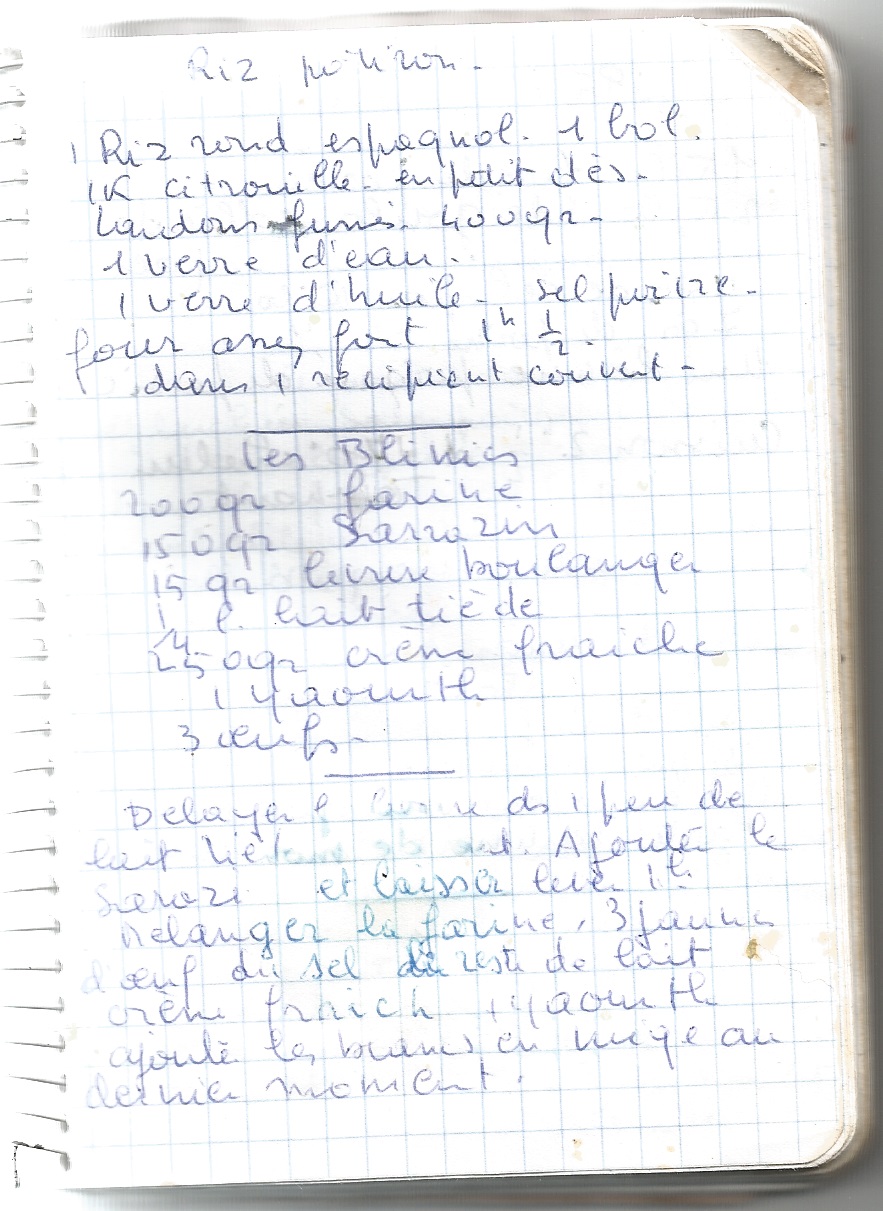 Riz potiron -
1 Riz rond espagnol. 1 bol.
1K citrouille. en petit dès -
Lardons fumés. 400gr -
1 verre d'eau.
1 verre d'huile - sel poivre -
four assez fort 1h 1/2.
dans 1 récipient couvert -
Les Blinies
200gr farine
150gr Sarrazin
15 gr levure boulanger
1/4 l. lait tiède
250gr crème fraiche
1 yaourth
3 œufs -
Délayer ds 1 peu de
lait Ajouter le
Sarazi et laisser lever 1h
Mélanger la farine, 3 jaunes
d'œuf du sel du reste de lait
crème fraich + yaourth
ajouté les blancs en neige au
dernier moment.